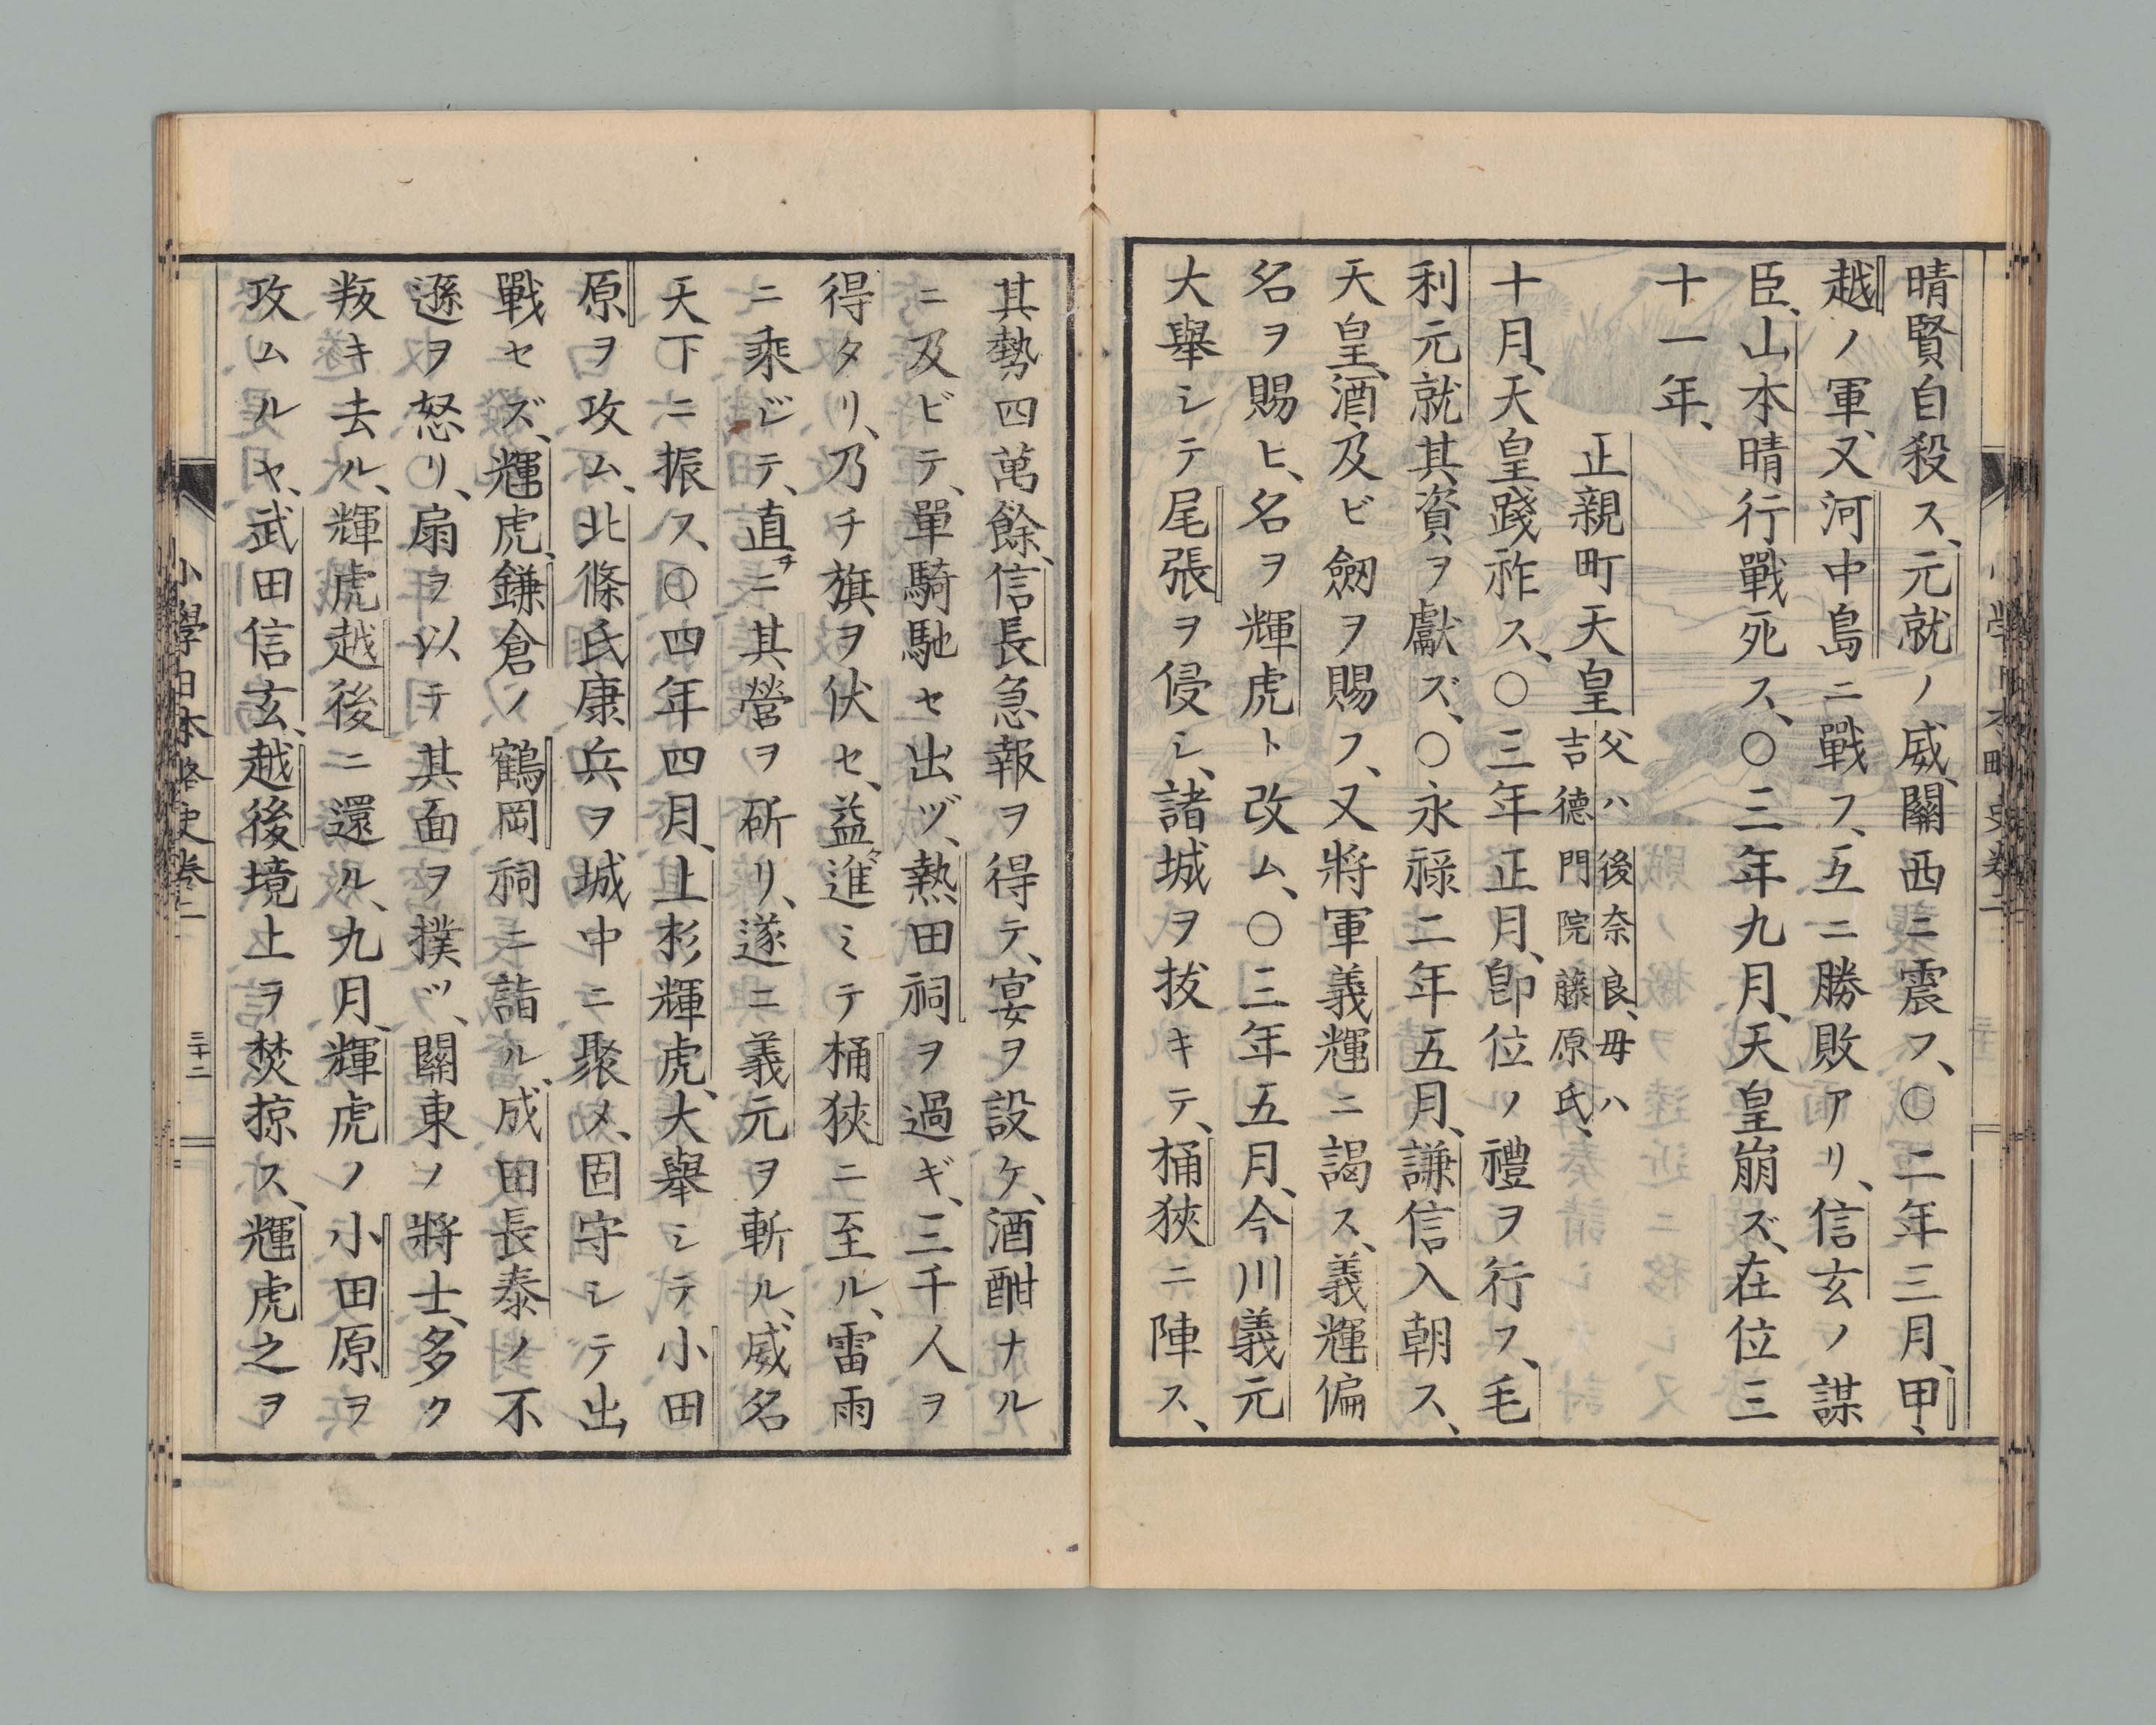 晴賢自殺ス、元就ノ威、關西ニ震フ、〇二年三月、甲、
越ノ軍、又河中島ニ戰フ、互ニ勝敗アリ、信玄ノ謀
臣、山本晴行戰死ス、〇三年九月、天皇崩ズ、在位三
十一年、
正親町天皇
父ハ後奈良、母ハ
吉德門院藤原氏、
十月、天皇踐祚ス、〇三年正月、卽位ノ禮ヲ行フ、毛
利元就其資ヲ獻ズ、〇永祿二年五月、謙信入朝ス、
天皇、酒及ビ劔ヲ賜フ、又將軍義輝ニ謁ス、義輝偏
名ヲ賜ヒ、名ヲ輝虎ト改ム、〇三年五月、今川義元
大擧シテ尾張ヲ侵シ、諸城ヲ拔キテ、桶狹ニ陣ス、
其勢四萬餘、信長急報ヲ得テ、宴ヲ設ケ、酒酣ナル
ニ及ビテ、單騎馳セ出ヅ、熱田祠ヲ過ギ、三千人ヲ
得タリ、乃チ旗ヲ伏セ、益〻進ミテ桶狹ニ至ル、雷雨
ニ乘ジテ、直チニ其營ヲ斫リ、遂ニ義元ヲ斬ル、威名
天下ニ振ス、〇四年四月、上杉輝虎、大擧シテ小田
原ヲ攻ム、北條氏康兵ヲ城中ニ聚メ、固守シテ出
戰セズ、輝虎、鎌倉ノ鶴岡祠ニ詣ル、成田長泰ノ不
遜ヲ怒リ、扇ヲ以テ其面ヲ撲ツ、關東ノ將士、多ク
叛キ去ル、輝虎越後ニ還ル、九月、輝虎ノ小田原ヲ
攻ムルヤ、武田信玄、越後境上ヲ焚掠ス、輝虎之ヲ
小學日本略史卷二
三十二